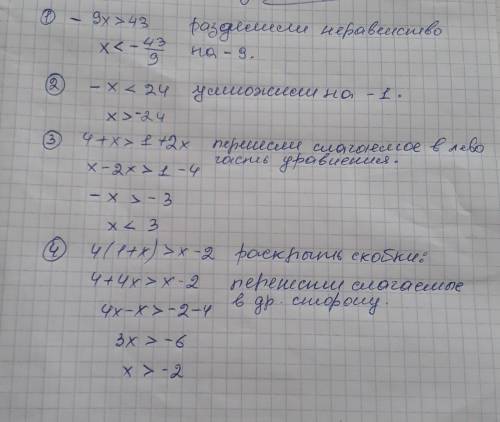 ① - 9x > 43 разделили неравенство
x < - 43/9 на - 9.
② - x < 24 умножили на - 1.
x > -24
③ 4 + x > 1 + 2x перенесли слагаемое в лево
x - 2x > 1 - 4 часть уравнения.
- x > - 3
x < 3
④ 4(1+x) > x - 2 раскрыть скобки:
4 + 4x > x - 2 перенесли слагаемые
4x - x > - 2 - 4 в др. сторону.
3x > - 6
x > - 2